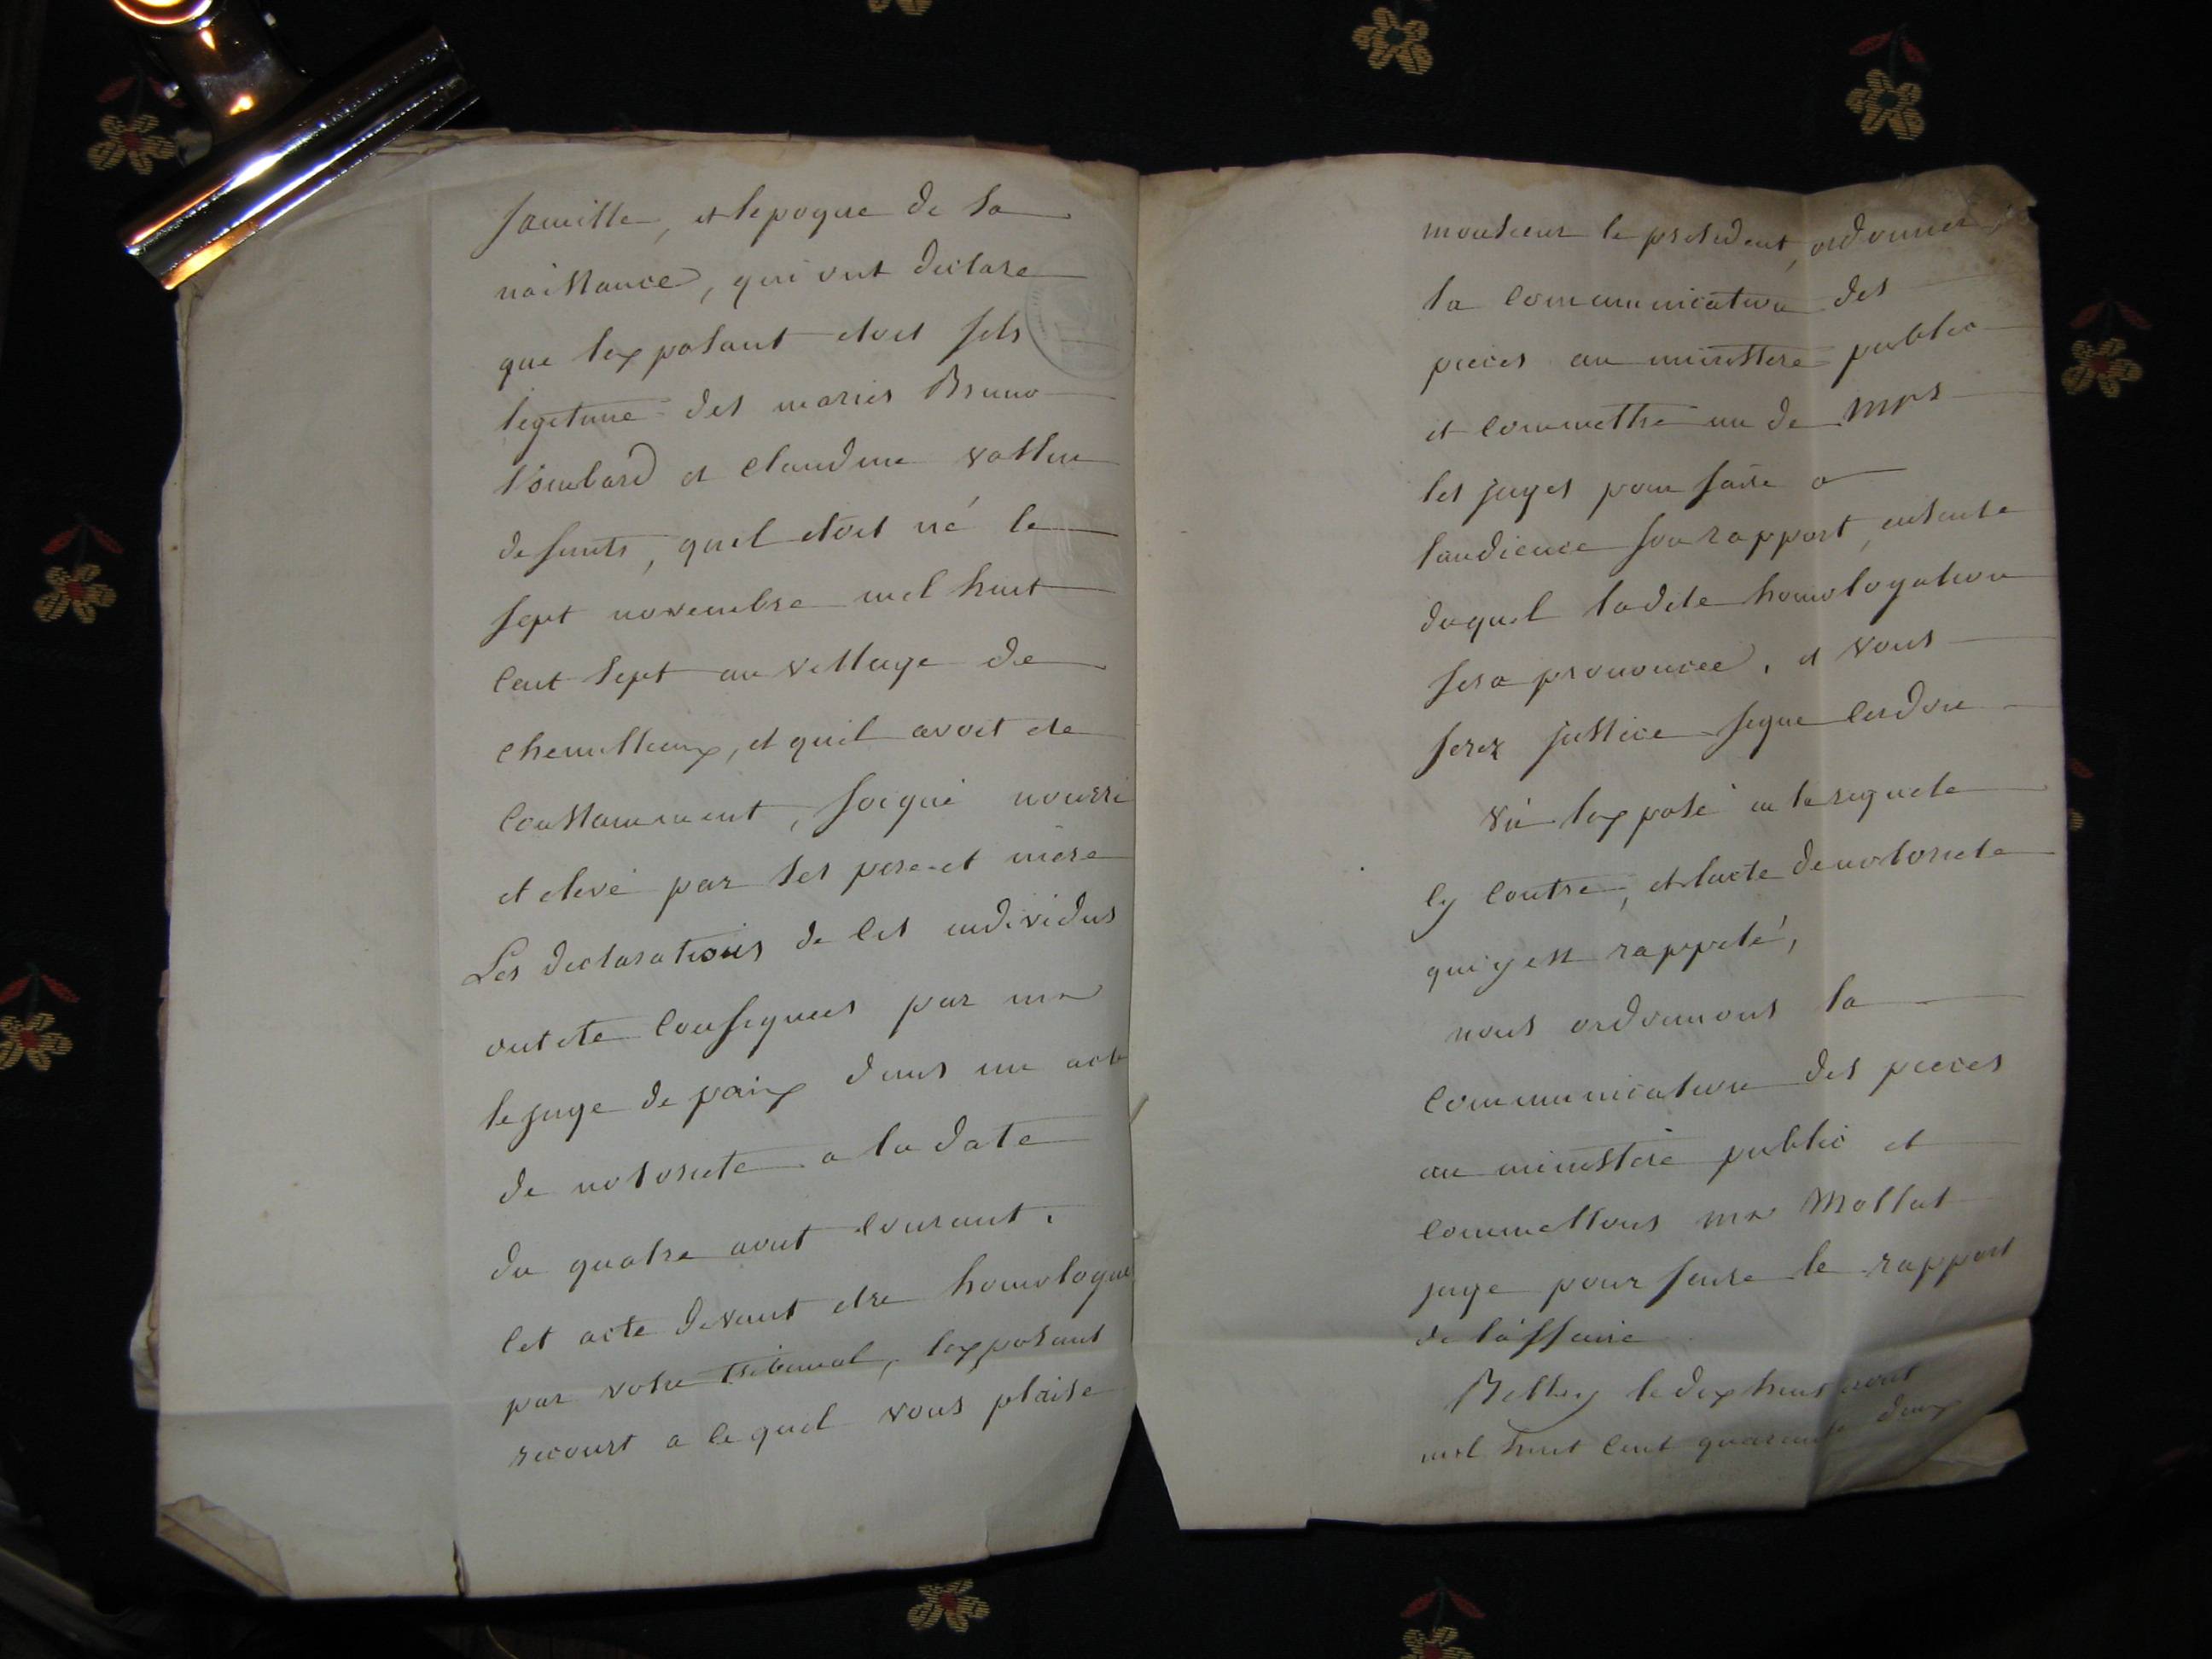 famille, et lepoque de sa
naissance, qui ont declare
que lexposant etoit fils
legitime des mariés Bruno
Lombard et Claudine
defunts, quil etoit né le
sept novembre mil huit
cent sept au village de
et quil avoit ete
constamment, soigné nourri
et elevé par ses pere et mère
Les declarations de ces individus
ont ete consignees par mr
le juge de paix dans un acte
de notoriete a la date
du quatre aout courant.
Cet acte devant etre homologué
par votre tribunal, lexposant
recourt a ce quil vous plaise
monsieur le president, ordonner
la communication des
pieces au ministere public
et commettre un de mrs
les juges pour faire a
laudience son rapport, ensuite
duquel ladite homologation
sera prononcée, et vous
ferez justice signe
Vu lexposé en la requete
cy contre, et lacte de notoriete
qui y est rappelé,
nous ordonnons la
communication des pieces
au ministère public et
commettons mr Mollat
juge pour faire le rapport
de laffaire
Belley le dix huit aout
mil huit cent quarante deux